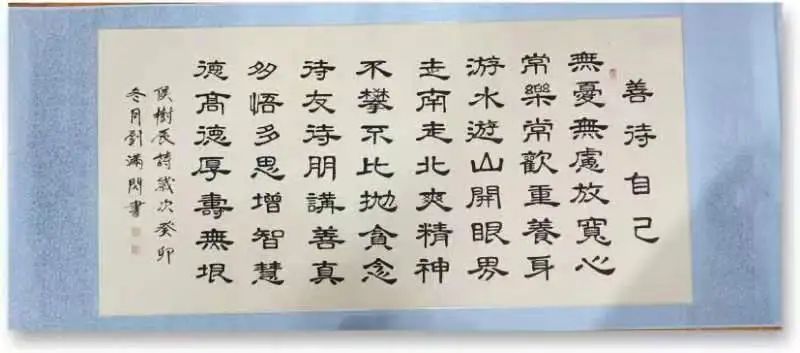 善待自己
無憂無慮放寬心
常樂常歡重養身
游水遊山開眼界
走南走北爽精神
不攀不比拋貪念
待友待朋講善真
多悟多思增智慧
德高德厚壽無垠
侯樹辰詩歲次癸卯
冬月劉滿閃書